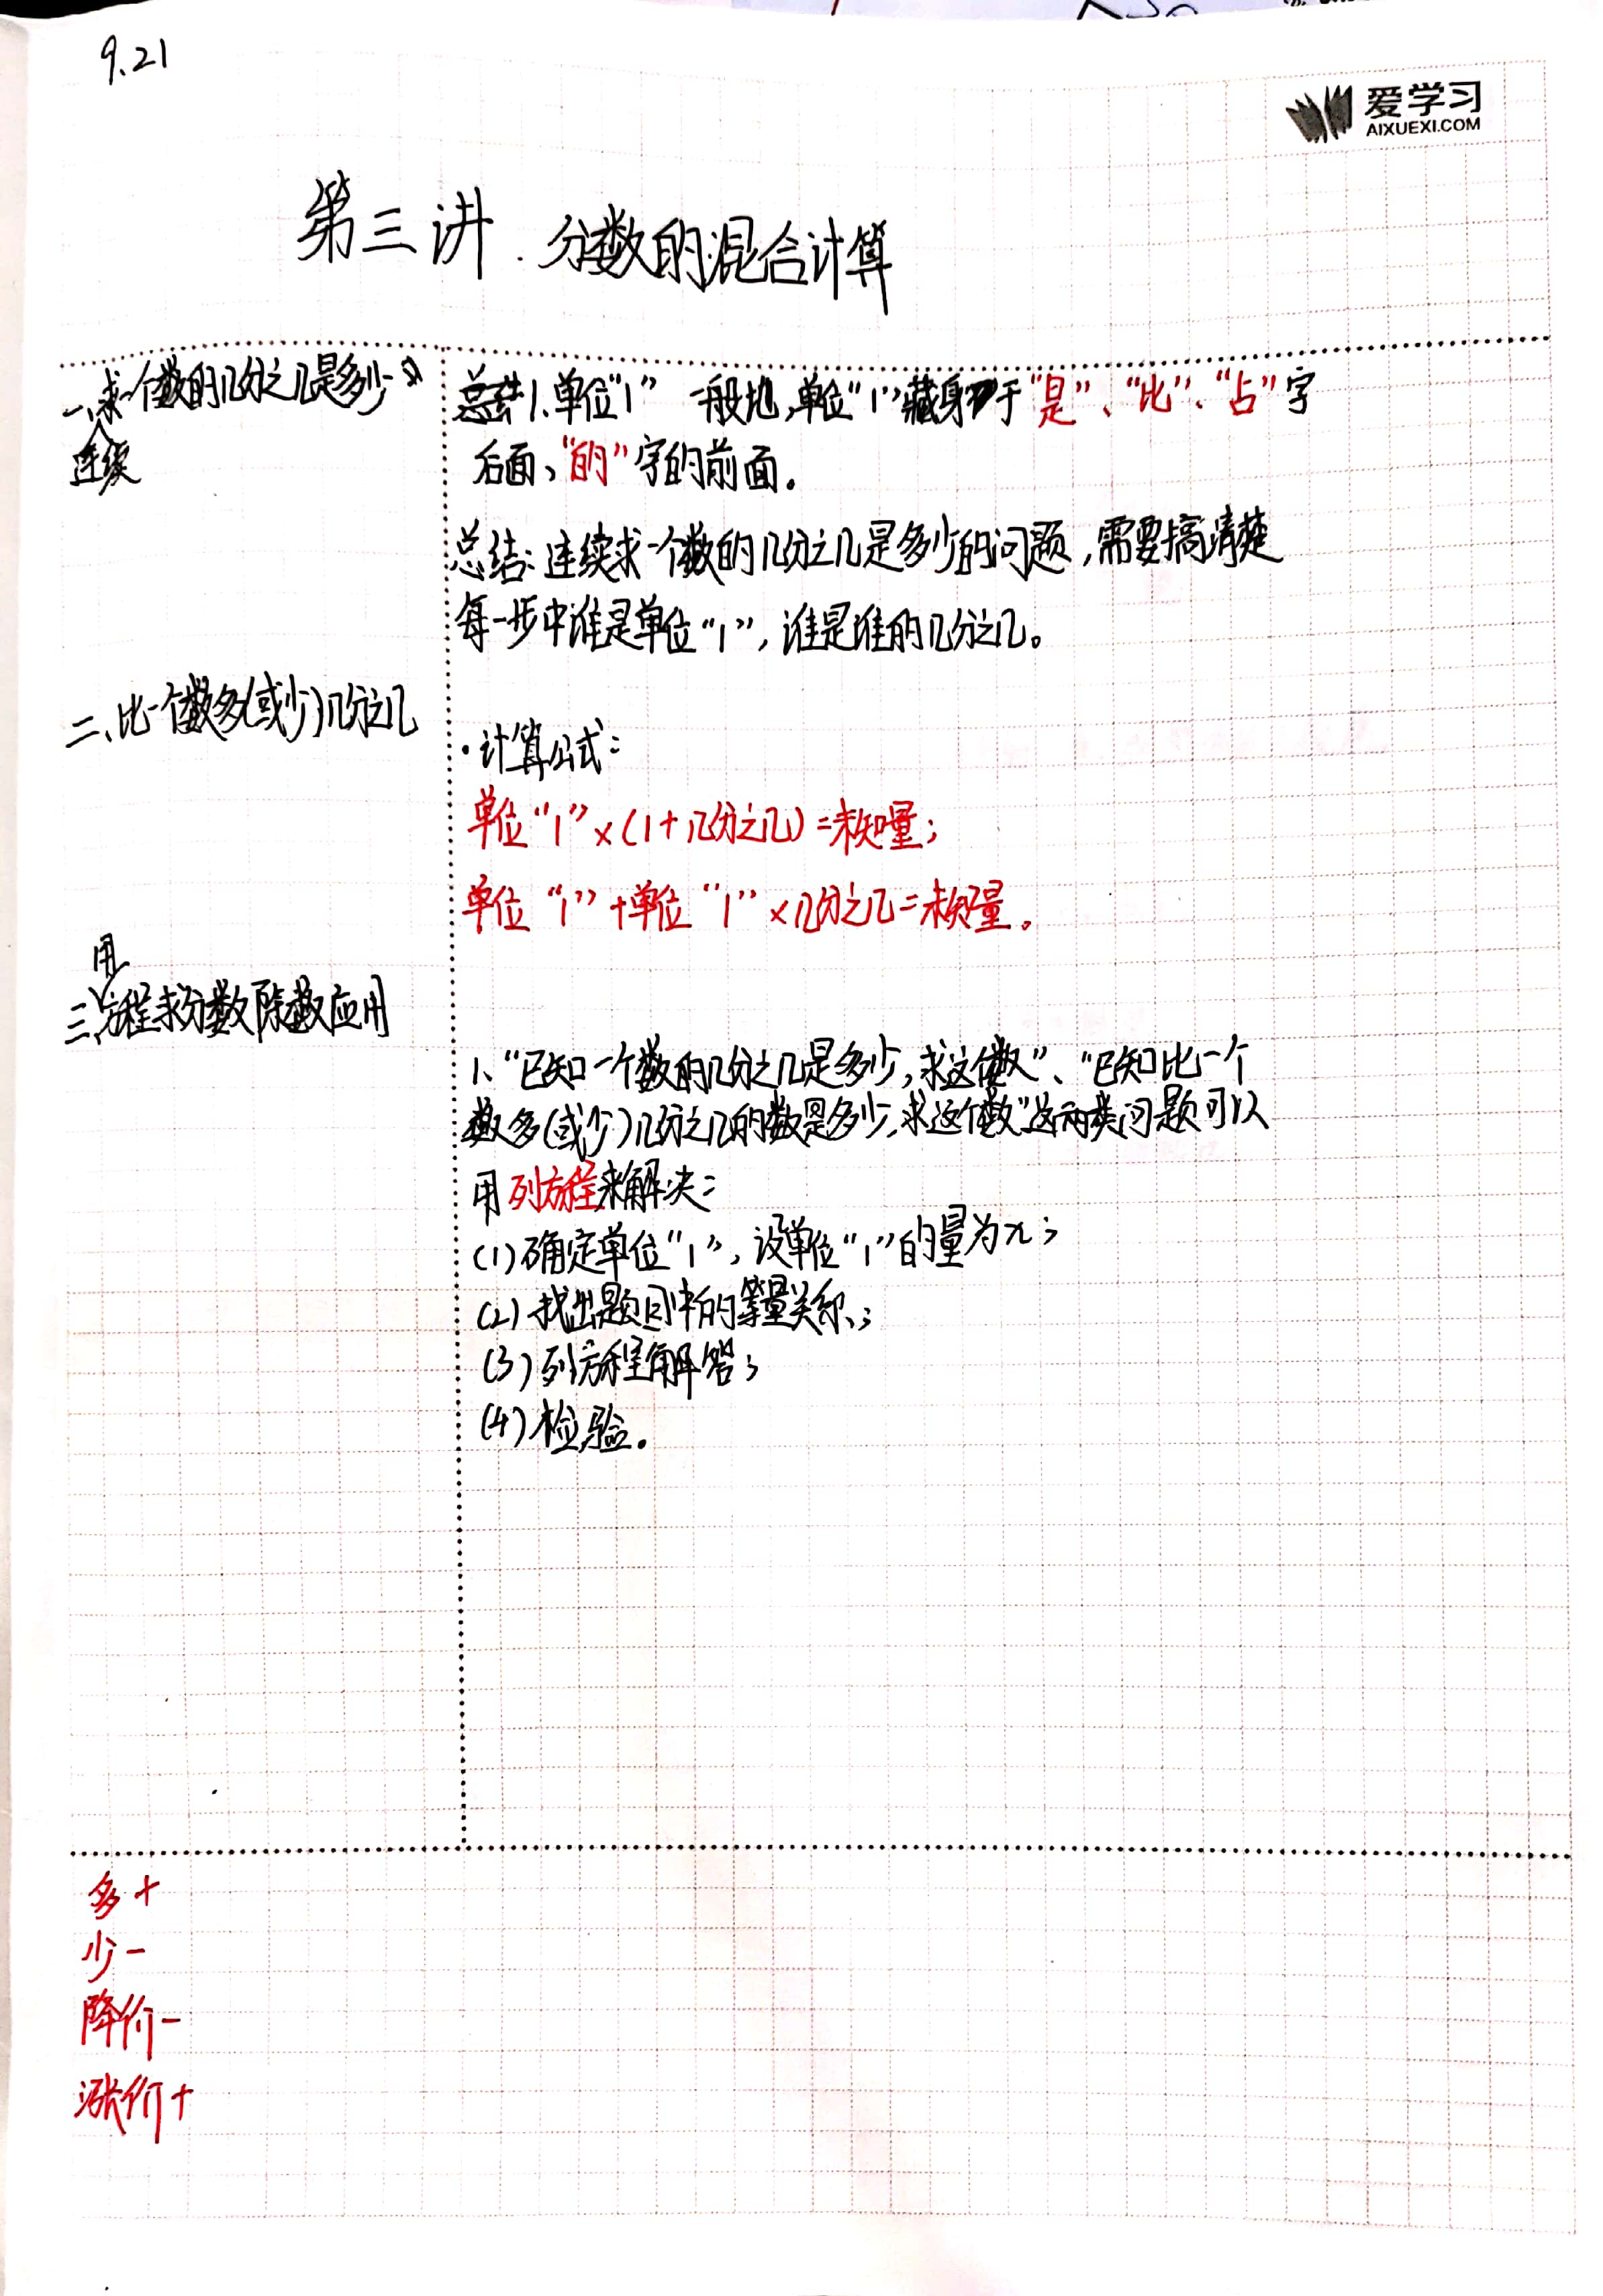 9.21
爱学习
AIXUEXI.COM
第三讲.分数的混合计算
一、连续求一个数的几分之几是多少
总结1、单位“1” 一般地,单位“1”藏身于“是”、“比”、“占”字
后面、“的”字的前面。
总结:连续求一个数的几分之几是多少的问题,需要搞清楚
每一步中谁是单位“1”,谁是谁的几分之几。
二、比一个数多(或少)几分之几
·计算公式:
单位“1”×(1+几分之几)=未知量;
单位“1”+单位“1”×几分之几=未知量。
三、用方程求分数除数应用
1、“已知一个数的几分之几是多少,求这个数”、“已知比一个
数多(或少)几分之几的数是多少,求这个数”这两类问题可以
用列方程来解决:
(1)确定单位“1”,设单位“1”的量为x;
(2)找出题目中的等量关系;
(3)列方程解答;
(4)检验。
多+
少-
降价-
涨价+